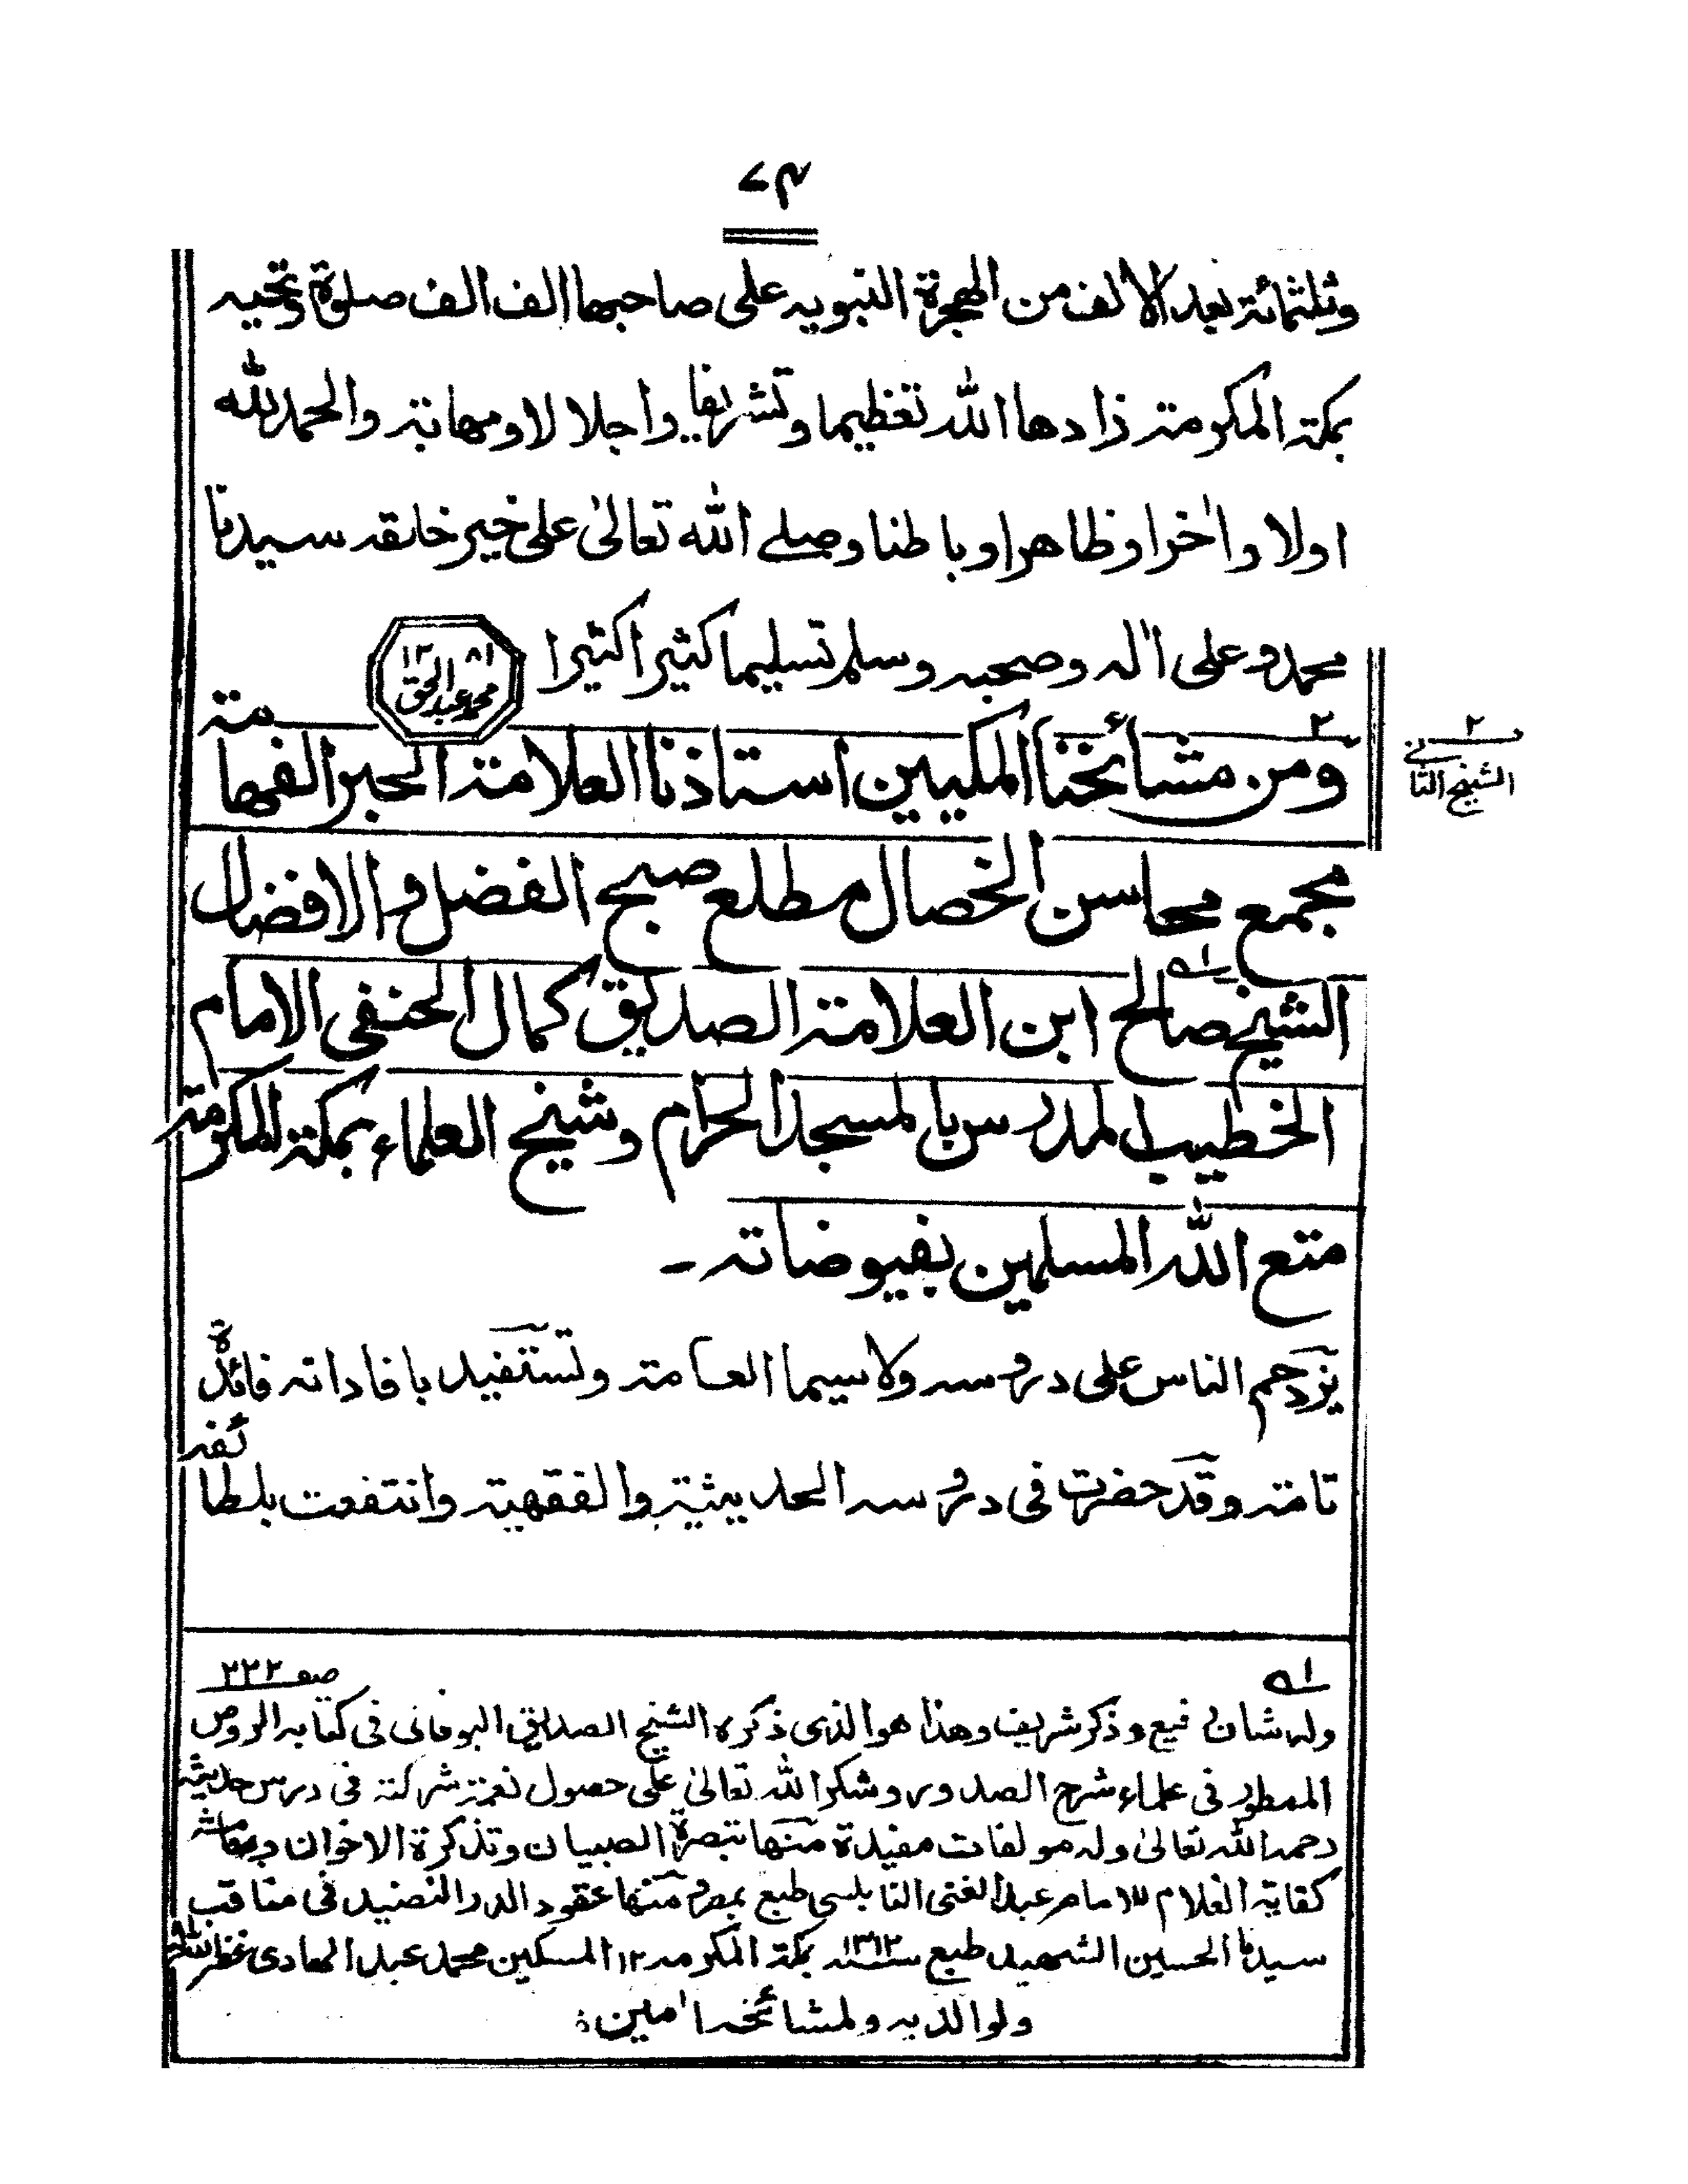 ٧٣
وثلثمائة بعد الالف من الهجرة النبويه على صاحبها الف الف صلوة وتحيه
بمكة المكرمة زادها الله تعظيما وتشريفا واجلالا ومهابة والحمد لله
اولا واٰخرا وظاهرا وباطنا وصلے الله تعالىٰ على خير خلقه سيدنا
محمد وعلى اٰله وصحبه وسلم تسليما كثيرا كثيرا
١٢٨١
محمد عبد الحق
٢
ومن مشائخنا المكيين استاذنا العلامة الحبر الفهامة
٢
الشيخ الثاني
مجمع محاسن الخصال مطلع صبح الفضل والافضال
الشيخ صالح ؂١ ابن العلامة الصديق كمال الحنفى الامام
الخطيب المدرس بالمسجد الحرام وشيخ العلماء بمكة المكرمة
متع الله المسلمين بفيوضاته ـ
يزدحم الناس على دروسه ولاسيما العامة وتستفيد بافاداته فائدة
تامة وقد حضرت فى دروسه الحديثية والفقهية وانتفعت بلطائفه
؂١
صفـ ٢٣٢
وله شان رفيع وذكر شريف وهذا هوالذى ذكره الشيخ الصديق البوفانى فى كتابه الروض
الممطور فى علماء شرح الصدور وشكر الله تعالىٰ على حصول نعمة شركته فى درس حديثه
رحمه الله تعالىٰ وله مولفات مفيدة منها تبصرة الصبيان وتذكرة الاخوان
كفاية الغلام للامام عبد الغنى النابلسى طبع بمصر ومنها عقود الدر النضيد فى مناقب
سيدنا الحسين الشهيد طبع سنه ١٣١٢ بمكة المكرمه ١٢ المسكين محمد عبد الهادى غفر الله له
ولوالديه ولمشائخه اٰمين ؛